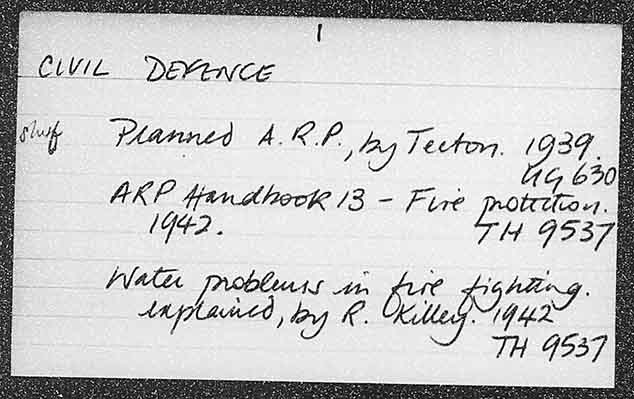 1
CIVIL DEFENCE
shelf Planned A.R.P., by Tecton. 1939.
UG 630
ARP Handbook 13 - Fire protection.
1942. TH 9537
Water problems in fire fighting.
explained, by R. Killey. 1942
TH 9537